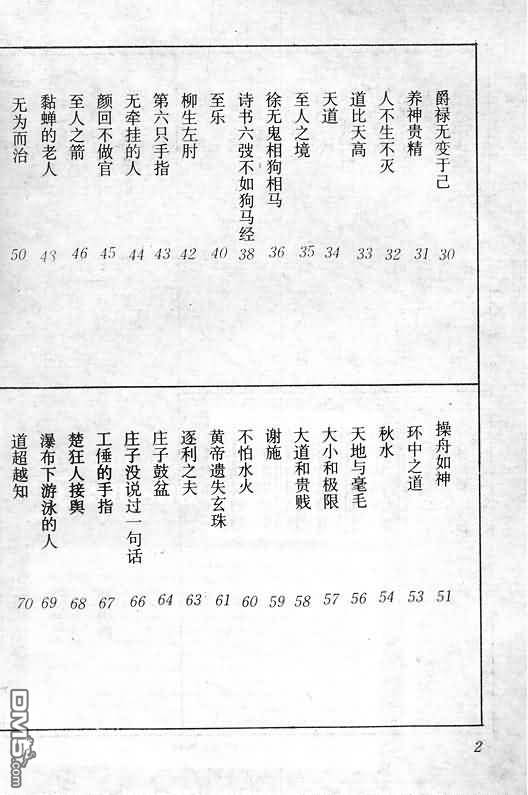 爵禄无变于己 30
养神贵精 31
人不生不灭 32
道比天高 33
天道 34
至人之境 35
徐无鬼相狗相马 36
诗书六弢不如狗马经 38
至乐 40
柳生左肘 42
第六只手指 43
无牵挂的人 44
颜回不做官 45
至人之箭 46
黏蝉的老人 48
无为而治 50
操舟如神 51
环中之道 53
秋水 54
天地与毫毛 56
大小和极限 57
大道和贵贱 58
谢施 59
不怕水火 60
黄帝遗失玄珠 61
逐利之夫 63
庄子鼓盆 64
庄子没说过一句话 66
工倕的手指 67
楚狂人接舆 68
瀑布下游泳的人 69
道超越知 70
2
DM5.com